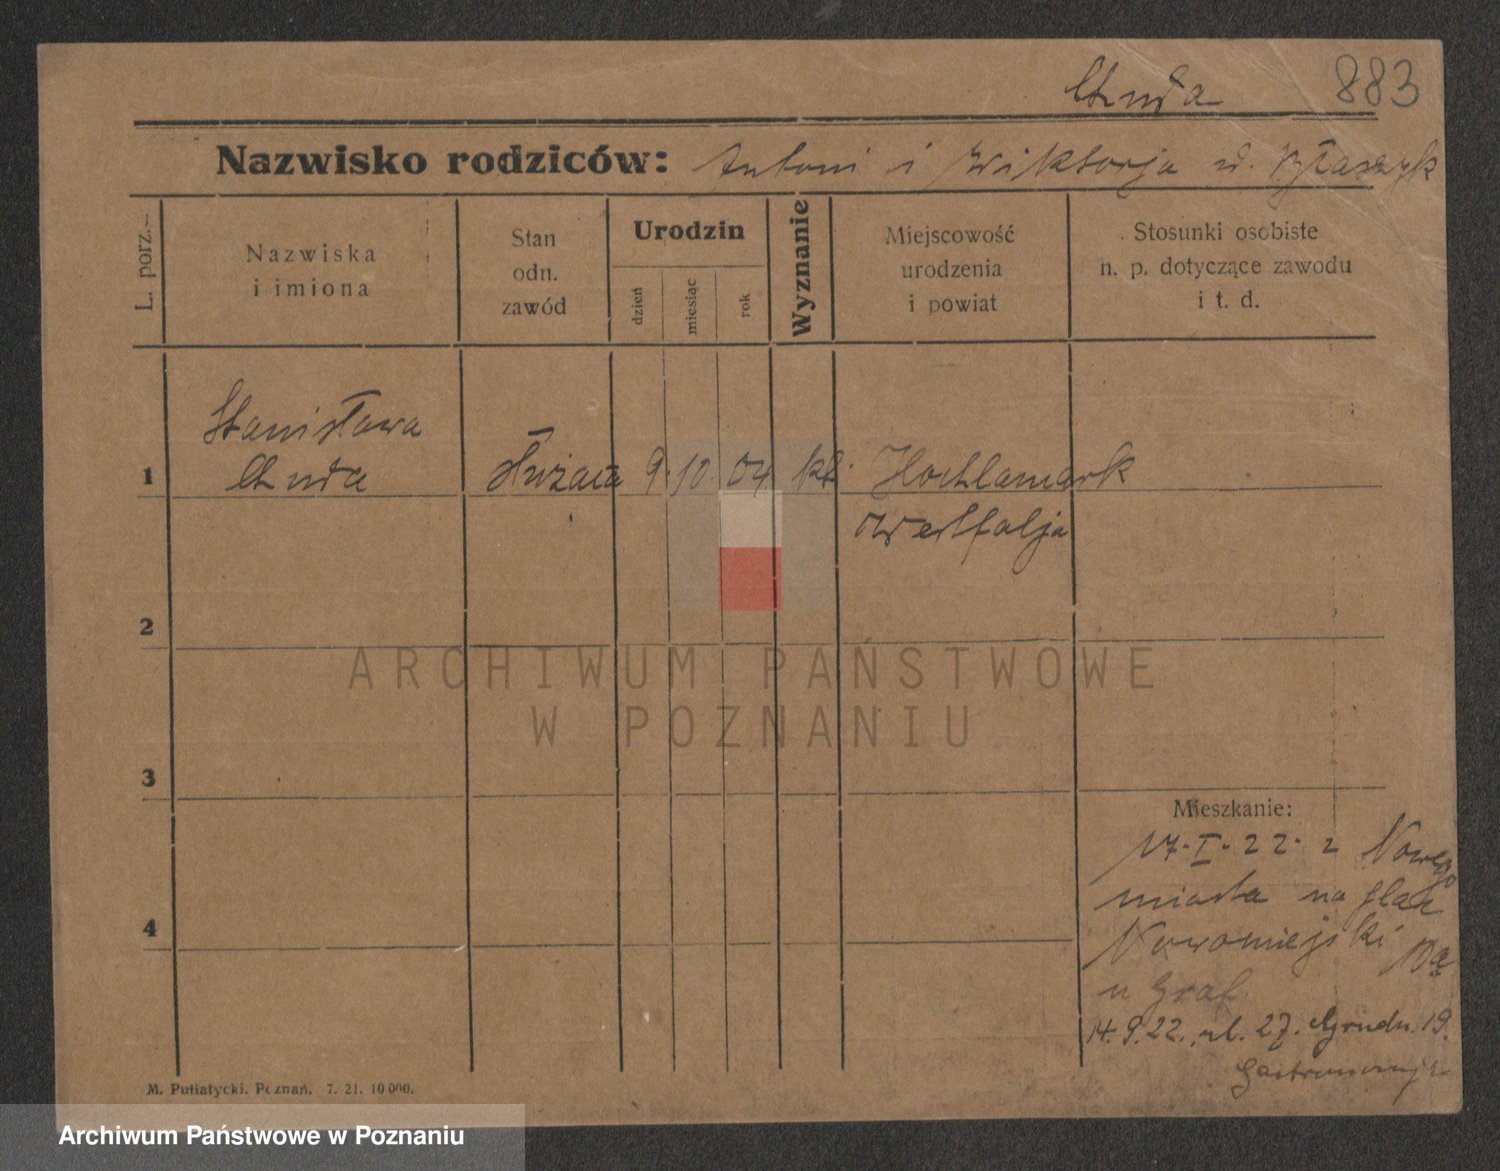 Chuda 883
Nazwisko rodziców: Antoni i Wiktorja
L. porz.
Nazwiska
i imiona
Stan
odn.
zawód
Urodzin
dzień
miesiąc
rok
Wyznanie
Miejscowość
urodzenia
i powiat
Stosunki osobiste
n. p. dotyczące zawodu
i t. d.
Stanisława
1 Chuda służąca 9. 10. 04 kt. Hochlamark
Westfalja
2
ARCHIWUM PAŃSTWOWE
W POZNANIU
3
Mieszkanie:
17. I. 22. z Nowego
miasta na plac
4 Nowomiejski 10a
u Graf
14. 9. 22., ul. 27. Grudn. 19.
Gastronomja
M. Putiatycki. Poznań. 7. 21. 10 000.
Archiwum Państwowe w Poznaniu